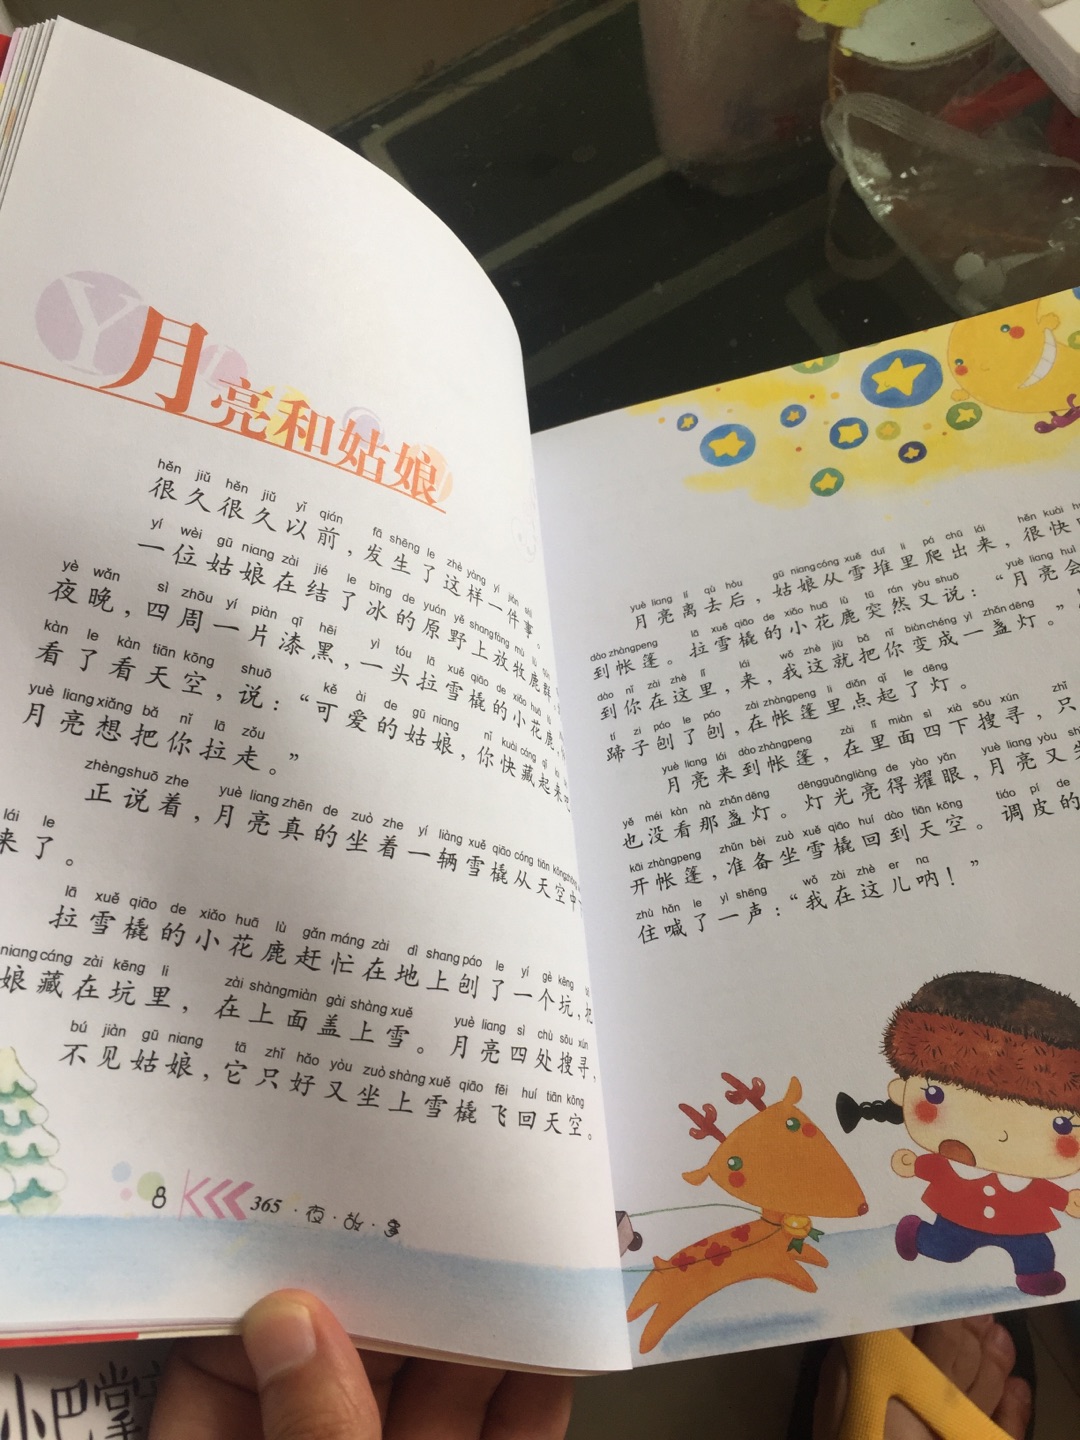 Y
月亮和姑娘
hěn jiǔ hěn jiǔ yǐ qián fā shēng le zhè yàng yí jiàn shì
很久很久以前，发生了这样一件事。
yí wèi gū niang zài jié le bīng de yuán yě shang fàng mù lù qún
一位姑娘在结了冰的原野上放牧鹿群。
yè wǎn sì zhōu yí piàn qī hēi yì tóu lā xuě qiāo de xiǎo huā lù
夜晚，四周一片漆黑，一头拉雪橇的小花鹿
kàn le kàn tiān kōng shuō kě ài de gū niang nǐ kuài cáng qǐ lái ba
看了看天空，说：“可爱的姑娘，你快藏起来吧
yuè liang xiǎng bǎ nǐ lā zǒu
月亮想把你拉走。”
zhèng shuō zhe yuè liang zhēn de zuò zhe yí liàng xuě qiāo cóng tiān kōng zhōng
正说着，月亮真的坐着一辆雪橇从天空中
lái le
来了。
lā xuě qiāo de xiǎo huā lù gǎn máng zài dì shang páo le yí gè kēng bǎ
拉雪橇的小花鹿赶忙在地上刨了一个坑，把
niang cáng zài kēng li zài shàng miàn gài shàng xuě yuè liang sì chù sōu xún
娘藏在坑里，在上面盖上雪。月亮四处搜寻，
bú jiàn gū niang tā zhǐ hǎo yòu zuò shàng xuě qiāo fēi huí tiān kōng
不见姑娘，它只好又坐上雪橇飞回天空。
8 365·夜·故·事
yuè liang lí qù hòu gū niang cóng xuě duī li pá chū lái hěn kuài h
月亮离去后，姑娘从雪堆里爬出来，很快
dào zhàng peng lā xuě qiāo de xiǎo huā lù tū rán yòu shuō yuè liang huì
到帐篷。拉雪橇的小花鹿突然又说：“月亮会
dào nǐ zài zhè lǐ lái wǒ zhè jiù bǎ nǐ biàn chéng yì zhǎn dēng
到你在这里，来，我这就把你变成一盏灯。”
tí zi páo le páo zài zhàng peng li diǎn qǐ le dēng
蹄子刨了刨，在帐篷里点起了灯。
yuè liang lái dào zhàng peng zài lǐ miàn sì xià sōu xún zhǐ
月亮来到帐篷，在里面四下搜寻，只
yě méi kàn nà zhǎn dēng dēng guāng liàng de yào yǎn yuè liang yòu shì
也没看那盏灯。灯光亮得耀眼，月亮又
kāi zhàng peng zhǔn bèi zuò xuě qiāo huí dào tiān kōng tiáo pí de
开帐篷，准备坐雪橇回到天空。调皮的
zhù hǎn le yì shēng wǒ zài zhè er na
住喊了一声：“我在这儿呐！”
小巴掌